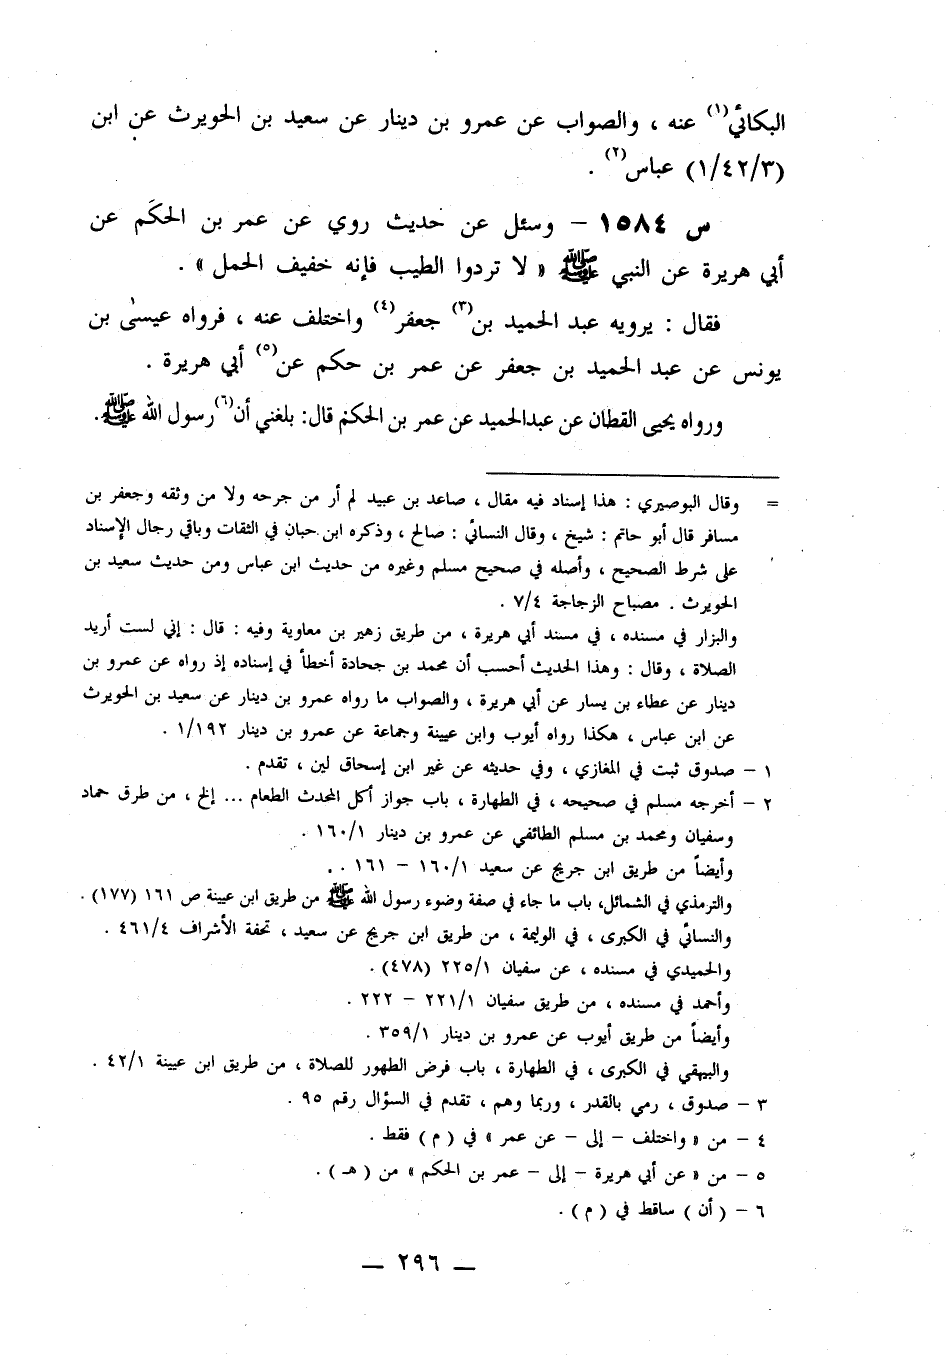 البكائي(١) عنه ، والصواب عن عمرو بن دينار عن سعيد بن الحويرث عن ابن
(١/٤٢/٣) عباس(٢) .
س ١٥٨٤ – وسئل عن حديث روي عن عمر بن الحكَم عن
أبي هريرة عن النبي ﷺ « لا تردوا الطيب فإنه خفيف الحمل » .
فقال : يرويه عبد الحميد بن(٣) جعفر(٤) واختلف عنه ، فرواه عيسىٰ بن
يونس عن عبد الحميد بن جعفر عن عمر بن حكم عن(٥) أبي هريرة .
ورواه يحيى القطان عن عبدالحميد عن عمر بن الحكم قال: بلغني أن(٦) رسول الله ﷺ.
= وقال البوصيري : هذا إسناد فيه مقال ، صاعد بن عبيد لم أر من جرحه ولا من وثقه وجعفر بن
مسافر قال أبو حاتم : شيخ ، وقال النسائي : صالح ، وذكره ابن حبان في الثقات وباقي رجال الإسناد
على شرط الصحيح ، وأصله في صحيح مسلم وغيره من حديث ابن عباس ومن حديث سعيد بن
الحويرث . مصباح الزجاجة ٧/٤ .
والبزار في مسنده ، في مسند أبي هريرة ، من طريق زهير بن معاوية وفيه : قال : إني لست أريد
الصلاة ، وقال : وهذا الحديث أحسب أن محمد بن جحادة أخطأ في إسناده إذ رواه عن عمرو بن
دينار عن عطاء بن يسار عن أبي هريرة ، والصواب ما رواه عمرو بن دينار عن سعيد بن الحويرث
عن ابن عباس ، هكذا رواه أيوب وابن عيينة وجماعة عن عمرو بن دينار ١/١٩٢ .
١ – صدوق ثبت في المغازي ، وفي حديثه عن غير ابن إسحاق لين ، تقدم .
٢ – أخرجه مسلم في صحيحه ، في الطهارة ، باب جواز أكل المحدث الطعام ... إلخ ، من طرق حماد
وسفيان ومحمد بن مسلم الطائفي عن عمرو بن دينار ١٦٠/١ .
وأيضاً من طريق ابن جريج عن سعيد ١٦٠/١ – ١٦١ .
والترمذي في الشمائل، باب ما جاء في صفة وضوء رسول الله ﷺ من طريق ابن عيينة ص ١٦١ (١٧٧) .
والنسائي في الكبرى ، في الوليمة ، من طريق ابن جريج عن سعيد ، تحفة الأشراف ٤٦١/٤ .
والحميدي في مسنده ، عن سفيان ٢٢٥/١ (٤٧٨) .
وأحمد في مسنده ، من طريق سفيان ٢٢١/١ – ٢٢٢ .
وأيضاً من طريق أيوب عن عمرو بن دينار ٣٥٩/١ .
والبيهقي في الكبرى ، في الطهارة ، باب فرض الطهور للصلاة ، من طريق ابن عيينة ٤٢/١ .
٣ – صدوق ، رمي بالقدر ، وربما وهم ، تقدم في السؤال رقم ٩٥ .
٤ – من « واختلف – إلى – عن عمر » في ( م ) فقط .
٥ – من « عن أبي هريرة – إلى – عمر بن الحكم » من ( هـ ) .
٦ – ( أن ) ساقط في ( م ) .
— ٢٩٦ —